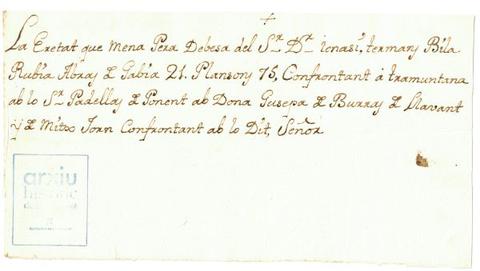 +
La Eretat que mena Pera Debesa del Sr. Dr. Ienasi, termany Bila
Rubia Abray de Gabia 21. Plansons 75, Confrontant á tramuntana
ab lo Sr. Padellas de Ponent ab Dona Gusepa de Burray de Llavant
y de Mitx Jorn Confrontant ab lo Dit, Señor
arxiu
històric